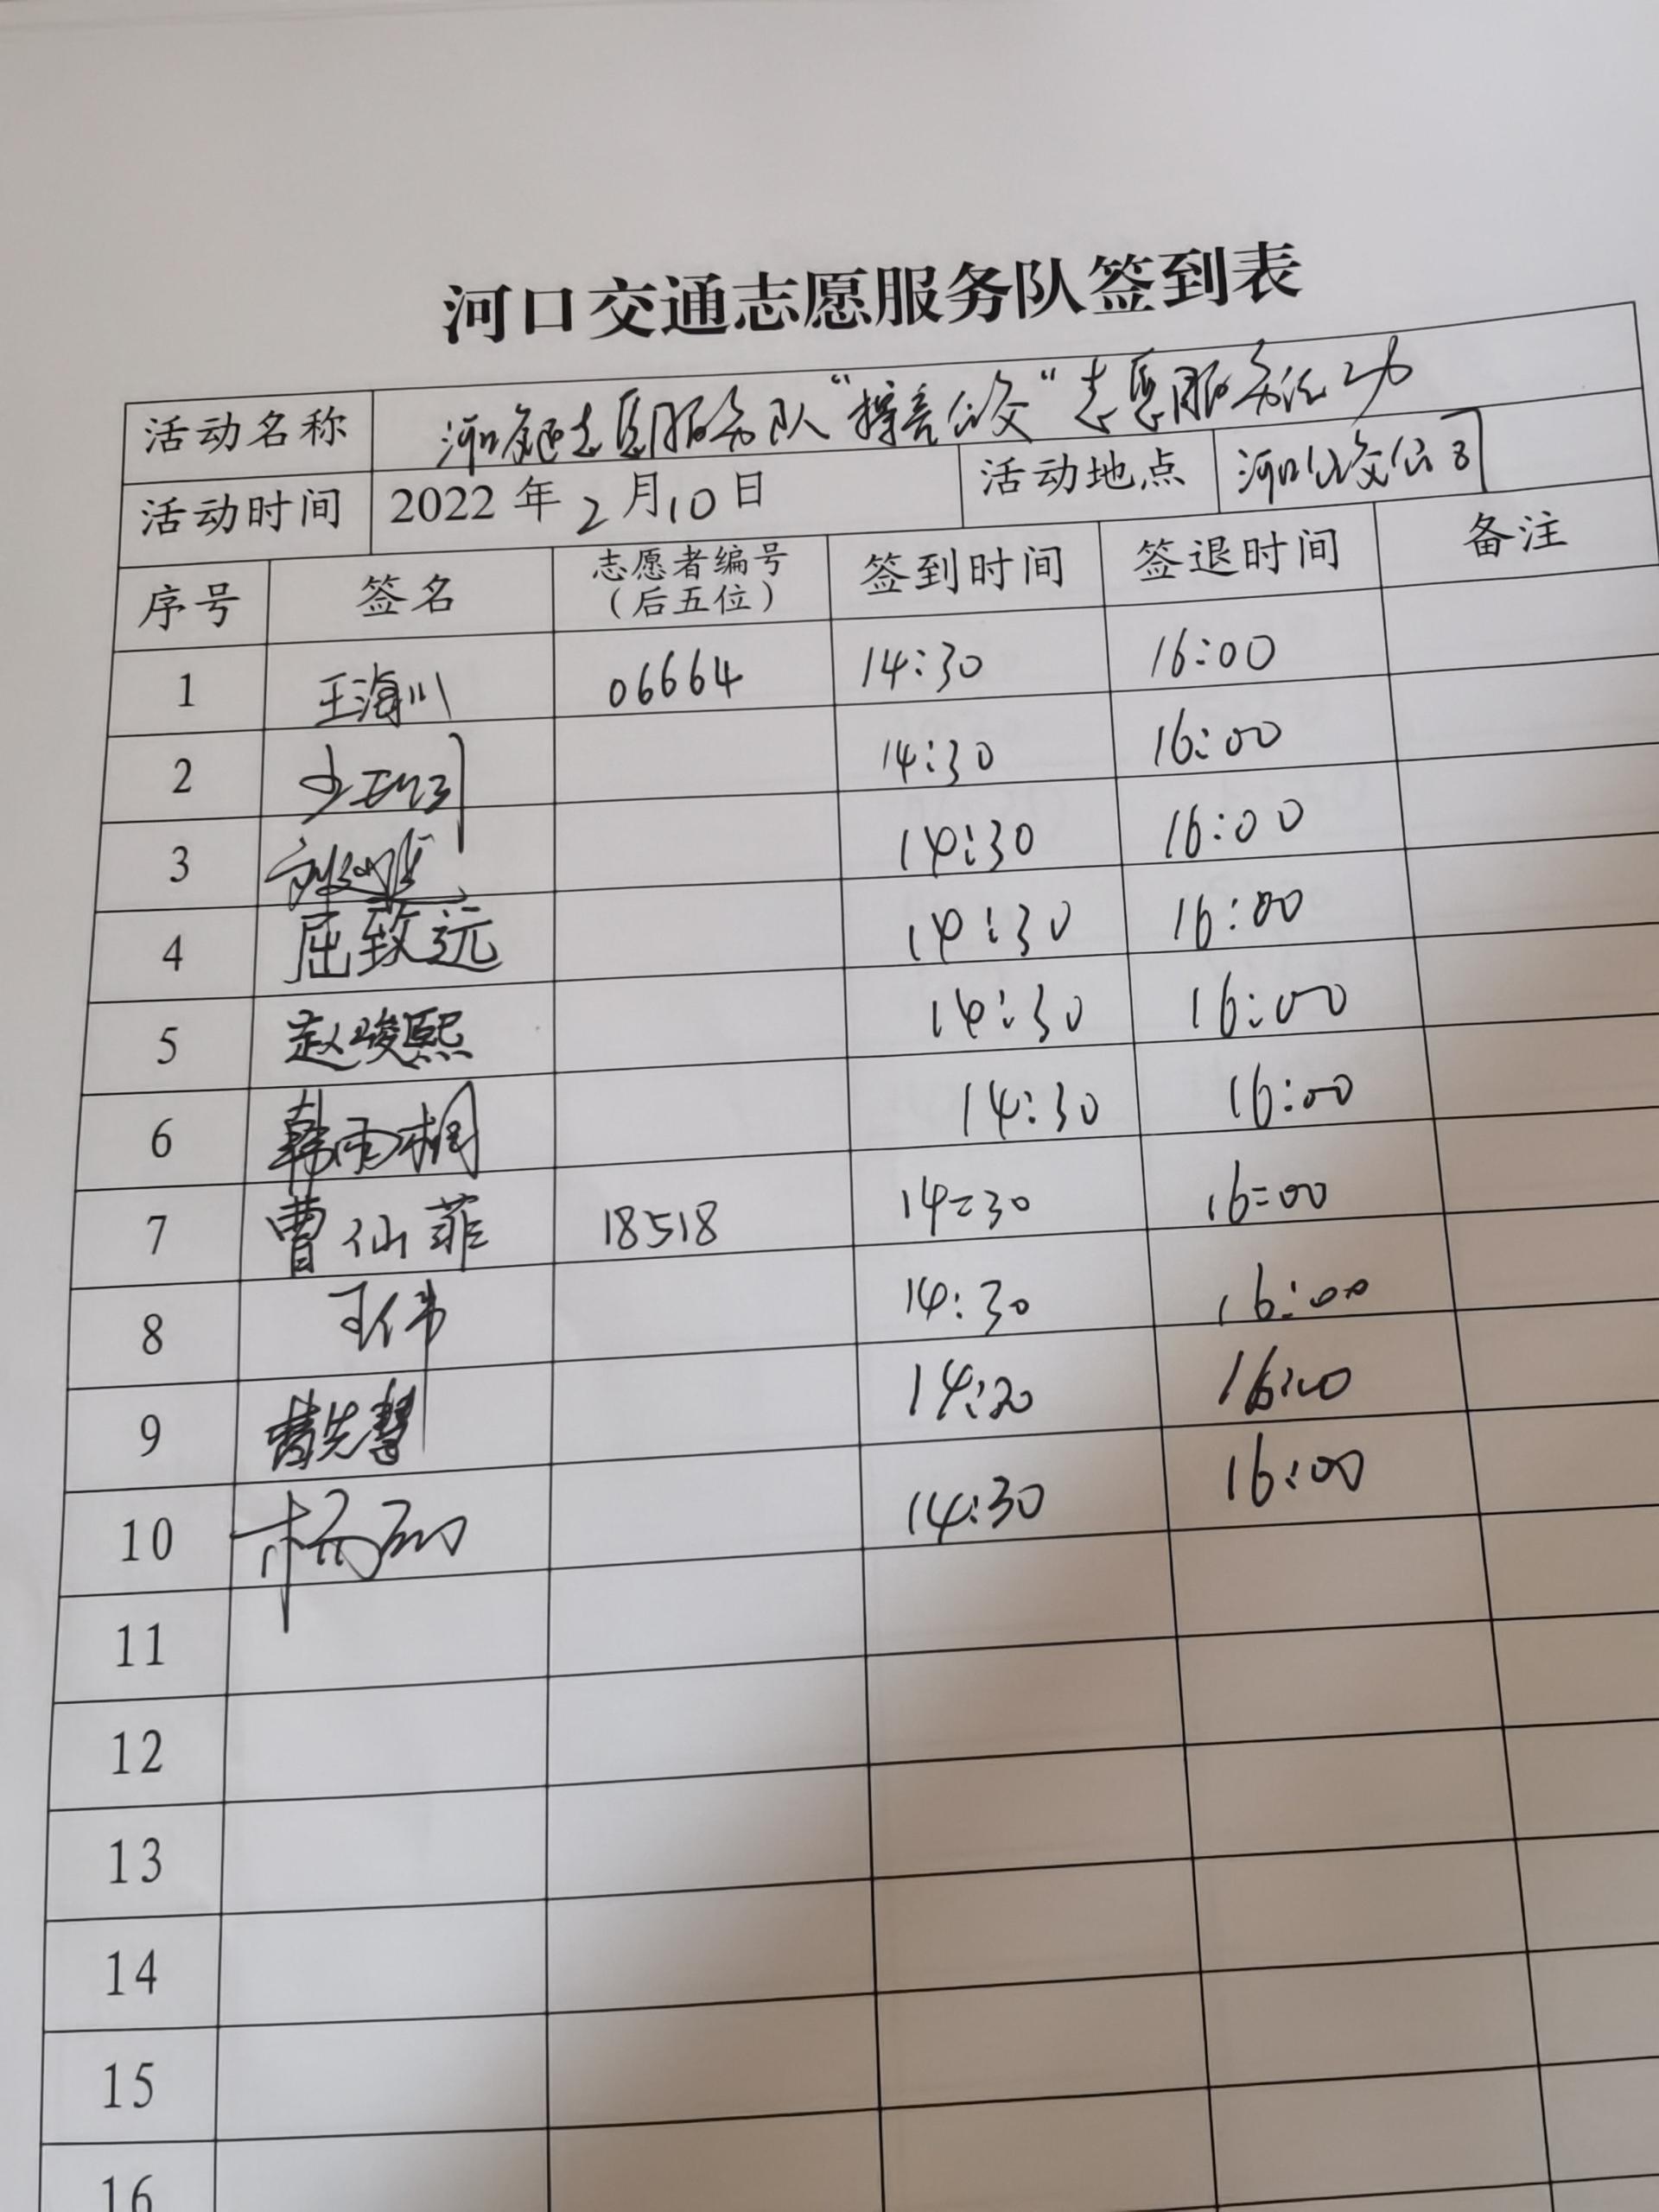 河口交通志愿服务队签到表
活动名称 河口交通志愿服务队“擦亮公交”志愿服务活动
活动时间 2022年2月10日 活动地点 河口公交公司
序号 签名 志愿者编号（后五位） 签到时间 签退时间 备注
1 王海川 06664 14:30 16:00
2 14:30 16:00
3 14:30 16:00
4 屈致远 14:30 16:00
5 赵峻熙 14:30 16:00
6 韩雨桐 14:30 16:00
7 曹仙菲 18518 14:30 16:00
8 王伟 14:30 16:00
9 黄先慧 14:30 16:00
10 杨 14:30 16:00
11
12
13
14
15
16